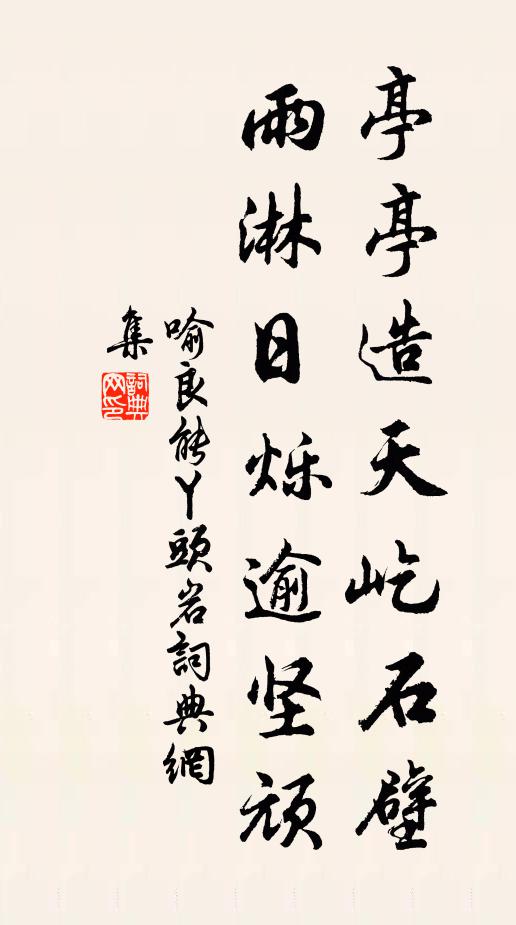 亭亭造天屹石壁
雨淋日烁逾坚顽
喻良能丫頭岩詞典網
集
詞典网印